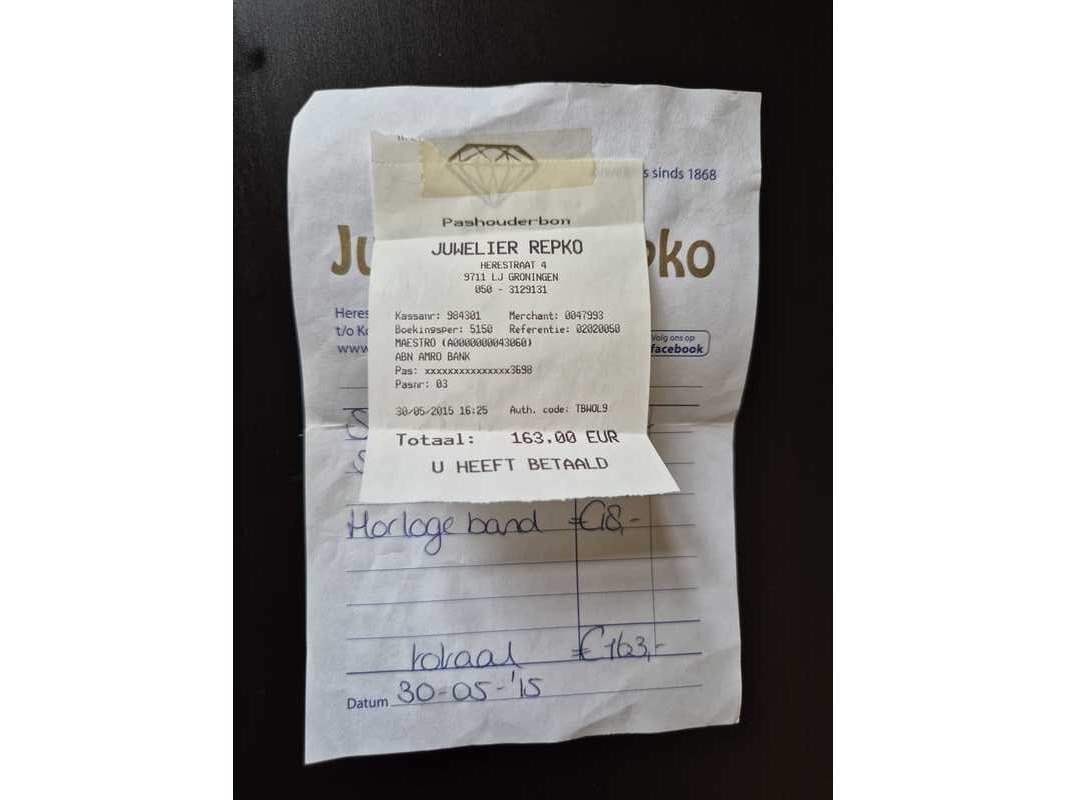 s sinds 1868
Pashouderbon
Ju pko
JUWELIER REPKO
HERESTRAAT 4
9711 LJ GRONINGEN
050 - 3129131
Heres
t/o Ko
www
Volg ons op
facebook
Kassanr: 984301 Merchant: 0047993
Boekingsper: 5150 Referentie: 02020050
MAESTRO (A0000000043060)
ABN AMRO BANK
Pas: xxxxxxxxxxxxxxx3698
Pasnr: 03
30/05/2015 16:25 Auth. code: TBWOL9
Totaal: 163.00 EUR
U HEEFT BETAALD
Horloge band €18,-
totaal €163,-
Datum 30-05-'15